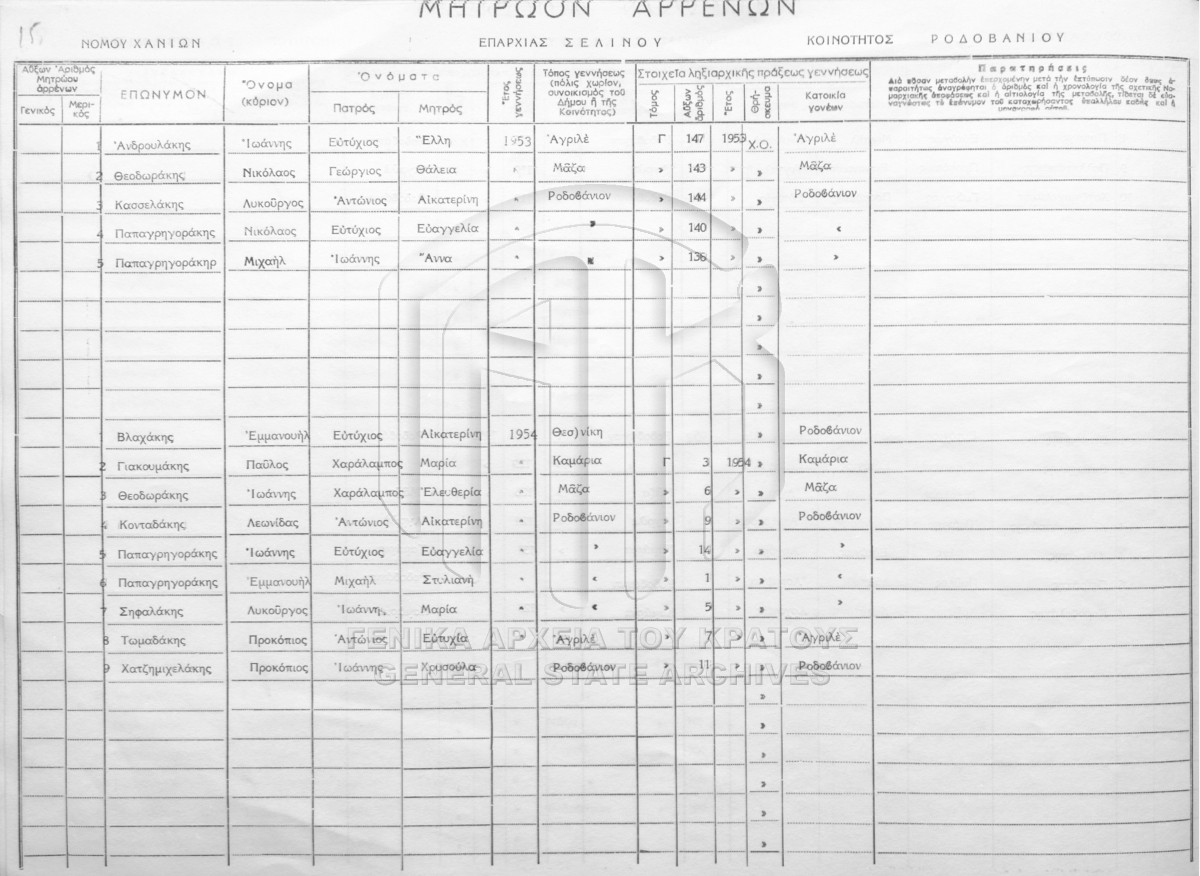 15
ΜΗΤΡΩΟΝ ΑΡΡΕΝΩΝ
ΝΟΜΟΥ ΧΑΝΙΩΝ ΕΠΑΡΧΙΑΣ ΣΕΛΙΝΟΥ ΚΟΙΝΟΤΗΤΟΣ ΡΟΔΟΒΑΝΙΟΥ
Αὔξων Ἀριθμὸς Μητρῴου ἀρρένων
Γενικός Μερικός
ΕΠΩΝΥΜΟΝ
Ὄνομα (κύριον)
Ὀνόματα
Πατρός Μητρός
Ἔτος γεννήσεως
Τόπος γεννήσεως
(πόλις χωρίον,
συνοικισμὸς τοῦ
Δήμου ἢ τῆς
Κοινότητος)
Στοιχεῖα ληξιαρχικῆς πράξεως γεννήσεως
Τόμος Αὔξων ἀριθμὸς Ἔτος Θρήσκευμα
Κατοικία γονέων
Παρατηρήσεις
1 Ἀνδρουλάκης Ἰωάννης Εὐτύχιος Ἕλλη 1953 Ἀγριλὲ Γ 147 1953 Χ.Ο. Ἀγριλὲ
2 Θεοδωράκης Νικόλαος Γεώργιος Θάλεια " Μᾶζα » 143 » » Μᾶζα
3 Κασσελάκης Λυκοῦργος Ἀντώνιος Αἰκατερίνη " Ροδοβάνιον » 144 » » Ροδοβάνιον
4 Παπαγρηγοράκης Νικόλαος Εὐτύχιος Εὐαγγελία " » » 140 » » «
5 Παπαγρηγοράκηρ Μιχαὴλ Ἰωάννης Ἄννα " « » 136 » » »
»
»
»
»
»
1 Βλαχάκης Ἐμμανουὴλ Εὐτύχιος Αἰκατερίνη 1954 Θεσ)νίκη » Ροδοβάνιον
2 Γιακουμάκης Παῦλος Χαράλαμπος Μαρία " Καμάρια Γ 3 1954 » Καμάρια
3 Θεοδωράκης Ἰωάννης Χαράλαμπος Ἐλευθερία " Μᾶζα » 6 » » Μᾶζα
4 Κονταδάκης Λεωνίδας Ἀντώνιος Αἰκατερίνη " Ροδοβάνιον » 9 » » Ροδοβάνιον
5 Παπαγρηγοράκης Ἰωάννης Εὐτύχιος Εὐαγγελία " » » 14 » » »
6 Παπαγρηγοράκης Ἐμμανουὴλ Μιχαὴλ Στυλιανὴ " « » 1 » » «
7 Σηφαλάκης Λυκοῦργος Ἰωάννης Μαρία " « » 5 » » »
8 Τωμαδάκης Προκόπιος Ἀντώνιος Εὐτυχία » Ἀγριλὲ » 7 » » Ἀγριλὲ
9 Χατζημιχελάκης Προκόπιος Ἰωάννης Χρυσούλα " Ροδοβάνιον » 11 » » Ροδοβάνιον
»
»
»
»
»
»
ΓΕΝΙΚΑ ΑΡΧΕΙΑ ΤΟΥ ΚΡΑΤΟΥΣ
GENERAL STATE ARCHIVES